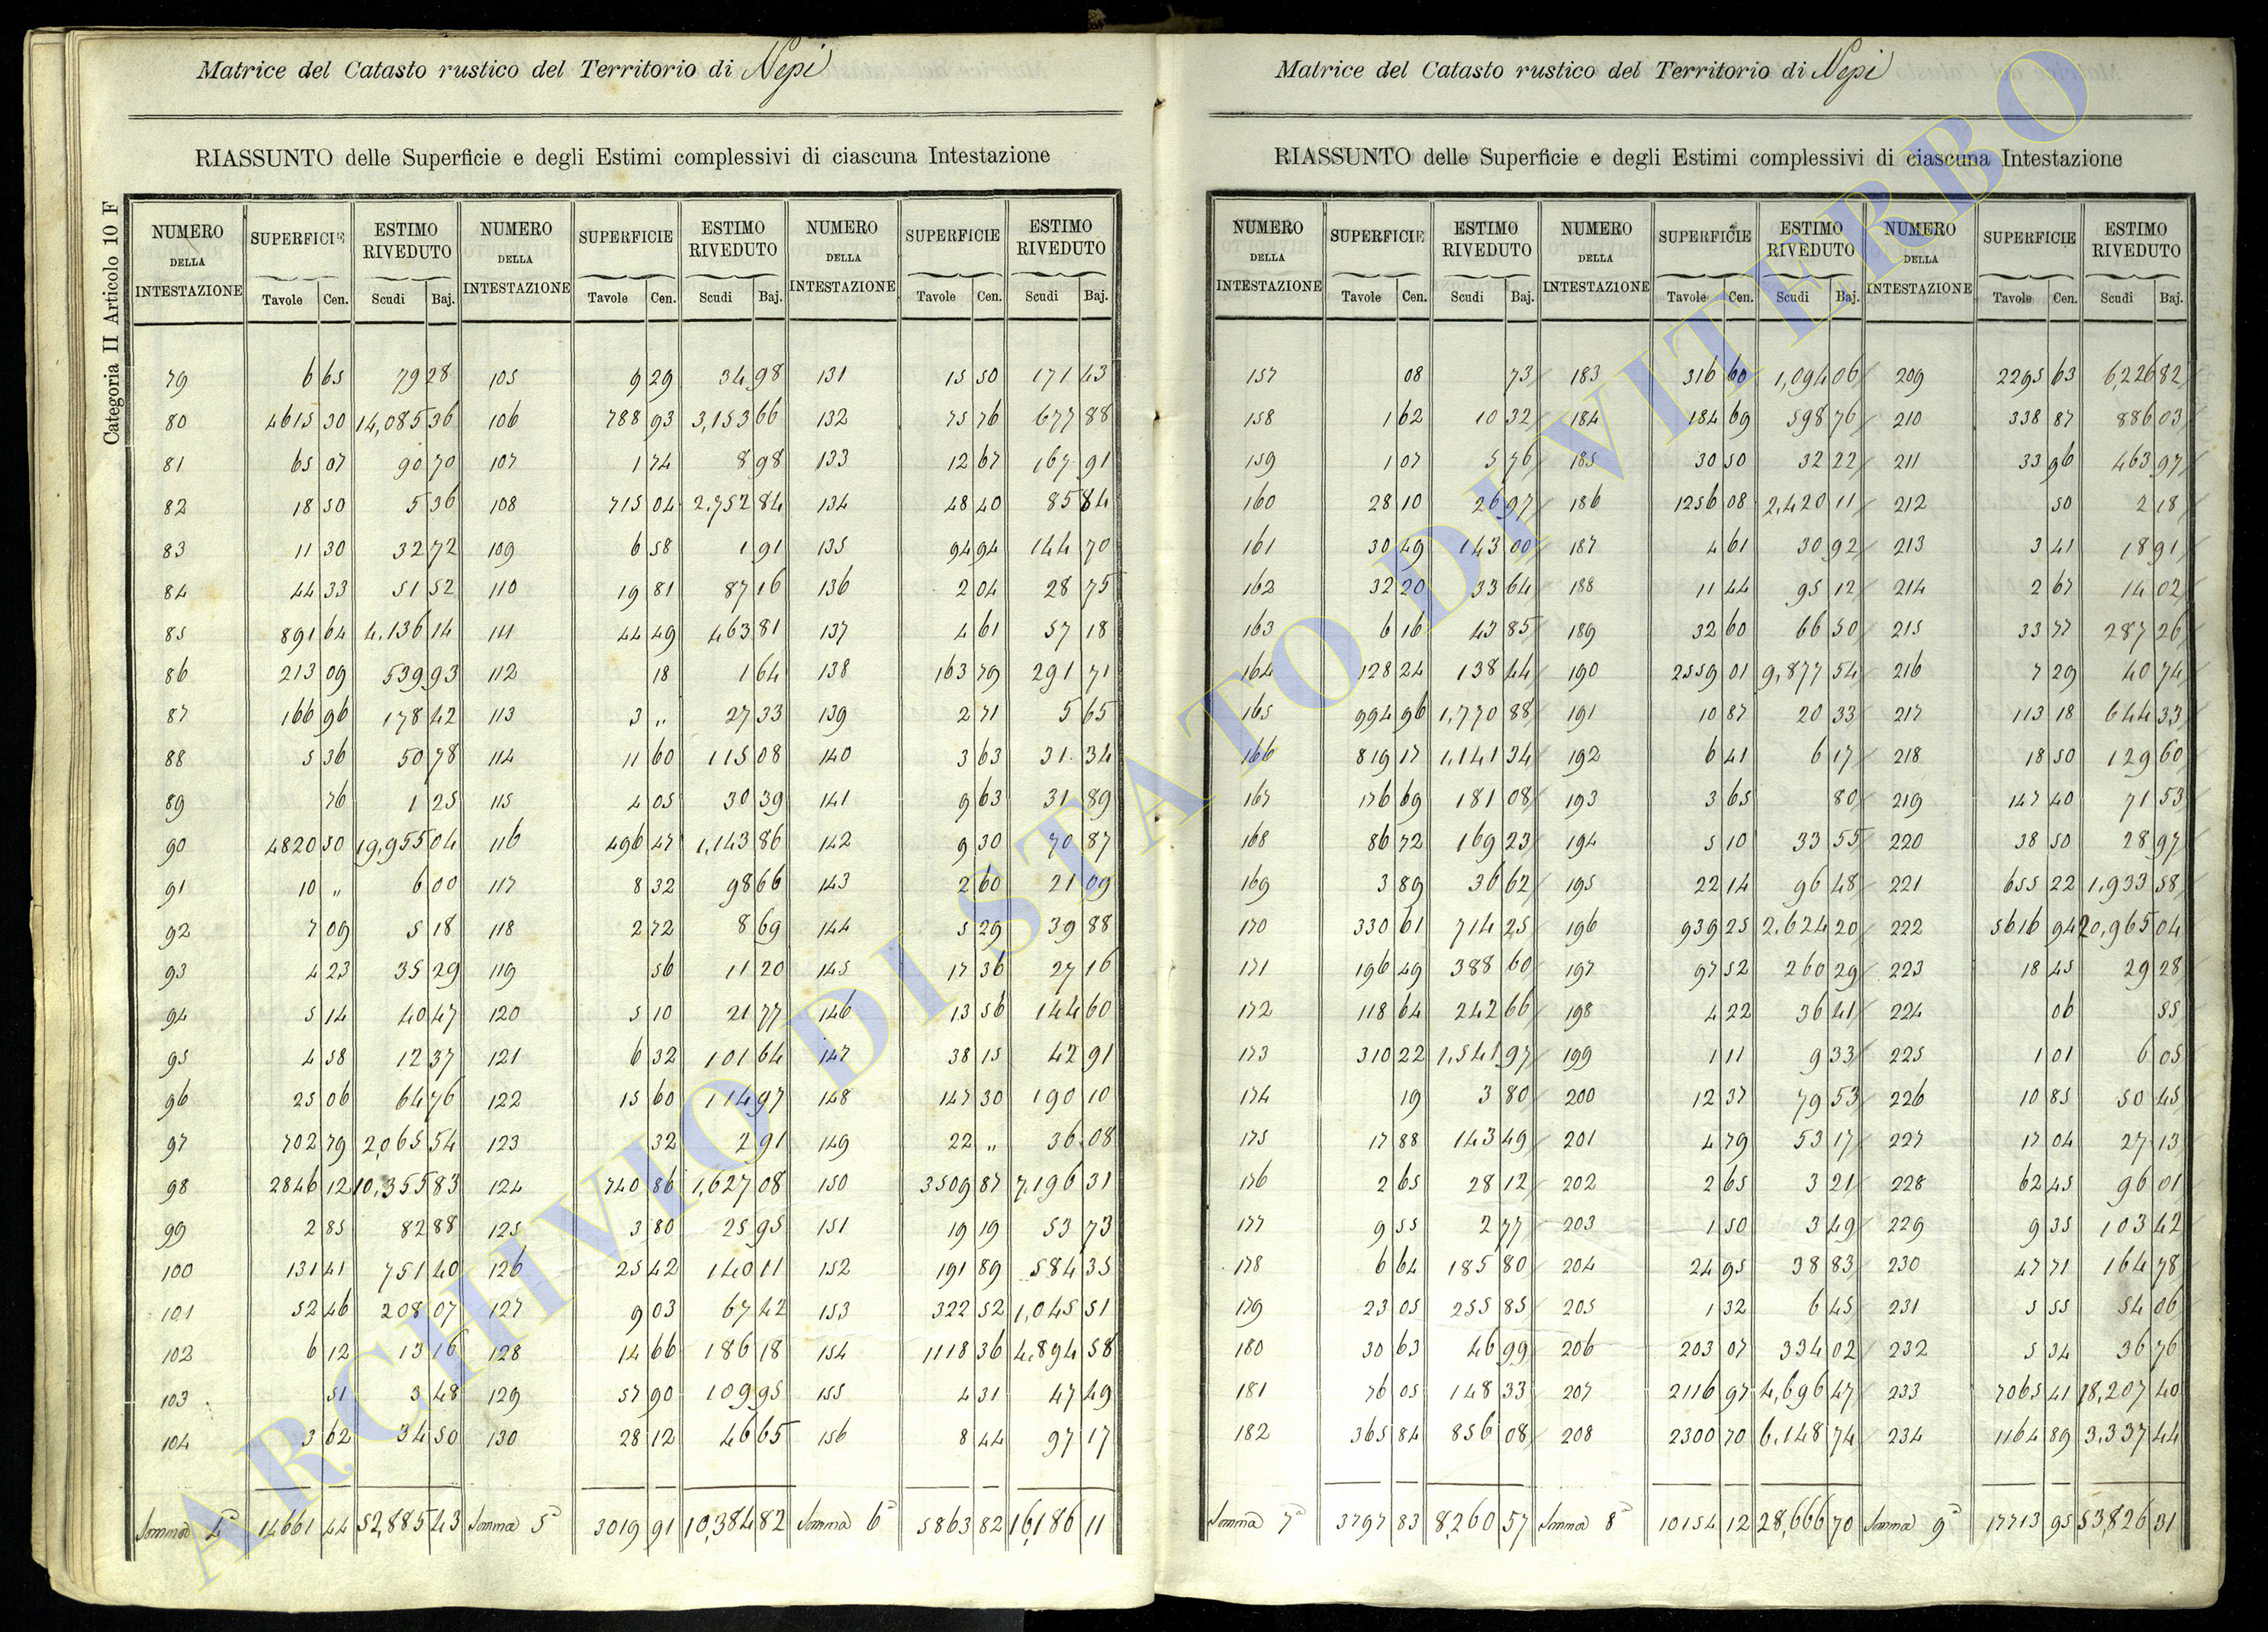 Matrice del Catasto rustico del Territorio di Nepi
RIASSUNTO delle Superficie e degli Estimi complessivi di ciascuna Intestazione
Categoria II Articolo 10 F
NUMERO DELLA INTESTAZIONE SUPERFICIE ESTIMO RIVEDUTO NUMERO DELLA INTESTAZIONE SUPERFICIE ESTIMO RIVEDUTO NUMERO DELLA INTESTAZIONE SUPERFICIE ESTIMO RIVEDUTO
Tavole Cen. Scudi Baj. Tavole Cen. Scudi Baj. Tavole Cen. Scudi Baj.
79 6 65 79 28 105 9 29 34 98 131 15 50 171 43
80 4615 30 14,085 36 106 788 93 3,153 66 132 75 76 677 88
81 65 07 90 70 107 1 74 8 98 133 12 67 167 91
82 18 50 5 36 108 715 04 2,752 84 134 48 40 85 84
83 11 30 32 72 109 6 58 1 91 135 94 94 144 70
84 44 33 51 52 110 19 81 87 16 136 2 04 28 75
85 891 64 4,136 14 111 44 49 463 81 137 4 61 57 18
86 213 09 539 93 112 18 1 64 138 163 79 291 71
87 166 96 178 42 113 3 " 27 33 139 2 71 5 65
88 5 36 50 78 114 11 60 115 08 140 3 63 31 34
89 76 1 25 115 4 05 30 39 141 9 63 31 89
90 4820 50 19,955 04 116 496 47 1,143 86 142 9 30 70 87
91 10 " 6 00 117 8 32 98 66 143 2 60 21 09
92 7 09 5 18 118 2 72 8 69 144 5 29 39 88
93 4 23 35 29 119 56 11 20 145 17 36 27 16
94 5 14 40 47 120 5 10 21 77 146 13 56 144 60
95 4 58 12 37 121 6 32 101 64 147 38 15 42 91
96 25 06 64 76 122 15 60 114 97 148 147 30 190 10
97 702 79 2,065 54 123 32 2 91 149 22 " 36 08
98 2846 12 10,355 83 124 740 86 1,627 08 150 3509 87 7,196 31
99 2 85 82 88 125 3 80 25 95 151 19 19 53 73
100 131 41 751 40 126 25 42 140 11 152 191 89 584 35
101 52 46 208 07 127 9 03 67 42 153 322 52 1,045 51
102 6 12 13 16 128 14 66 186 18 154 1118 36 4,894 58
103 51 3 48 129 57 90 109 95 155 4 31 47 49
104 3 62 34 50 130 28 12 46 65 156 8 44 97 17
Somma 4ª 14661 44 52,885 43 Somma 5ª 3019 91 10,384 82 Somma 6ª 5863 82 16,186 11
Matrice del Catasto rustico del Territorio di Nepi
RIASSUNTO delle Superficie e degli Estimi complessivi di ciascuna Intestazione
NUMERO DELLA INTESTAZIONE SUPERFICIE ESTIMO RIVEDUTO NUMERO DELLA INTESTAZIONE SUPERFICIE ESTIMO RIVEDUTO NUMERO DELLA INTESTAZIONE SUPERFICIE ESTIMO RIVEDUTO
Tavole Cen. Scudi Baj. Tavole Cen. Scudi Baj. Tavole Cen. Scudi Baj.
157 08 73 183 316 60 1,094 06 209 2295 63 6,226 82
158 1 62 10 32 184 184 69 598 76 210 338 87 886 03
159 1 07 5 76 185 30 50 32 22 211 33 96 463 97
160 28 10 26 97 186 1256 08 2,420 11 212 50 2 18
161 30 49 143 00 187 4 61 30 92 213 3 41 18 91
162 32 20 33 64 188 11 44 95 12 214 2 67 14 02
163 6 16 43 85 189 32 60 66 50 215 33 77 287 26
164 128 24 138 44 190 2559 01 9,877 54 216 7 29 40 74
165 994 96 1,770 88 191 10 87 20 33 217 113 18 644 33
166 819 17 1,141 34 192 6 41 6 17 218 18 50 129 60
167 176 69 181 08 193 3 65 80 219 147 40 71 53
168 86 72 169 23 194 5 10 33 55 220 38 50 28 97
169 3 89 36 62 195 22 14 96 48 221 655 22 1,933 58
170 330 61 714 25 196 939 25 2,624 20 222 5616 94 20,965 04
171 196 49 388 60 197 97 52 260 29 223 18 45 29 28
172 118 64 242 66 198 4 22 36 41 224 06 55
173 310 22 1,541 97 199 1 11 9 33 225 1 01 6 05
174 19 3 80 200 12 37 79 53 226 10 85 50 45
175 17 88 143 49 201 4 79 53 17 227 17 04 27 13
176 2 65 28 12 202 2 65 3 21 228 62 45 96 01
177 9 55 2 77 203 1 50 3 49 229 9 35 103 42
178 6 64 185 80 204 24 95 38 83 230 47 71 164 78
179 23 05 255 85 205 1 32 6 45 231 5 55 54 06
180 30 63 46 99 206 203 07 334 02 232 5 34 36 76
181 76 05 148 33 207 2116 97 4,696 47 233 7065 41 18,207 40
182 365 84 856 08 208 2300 70 6,148 74 234 1164 89 3,337 44
Somma 7ª 3797 83 8,260 57 Somma 8ª 10154 12 28,666 70 Somma 9ª 17713 95 53,826 31
ARCHIVIO DI STATO DI VITERBO